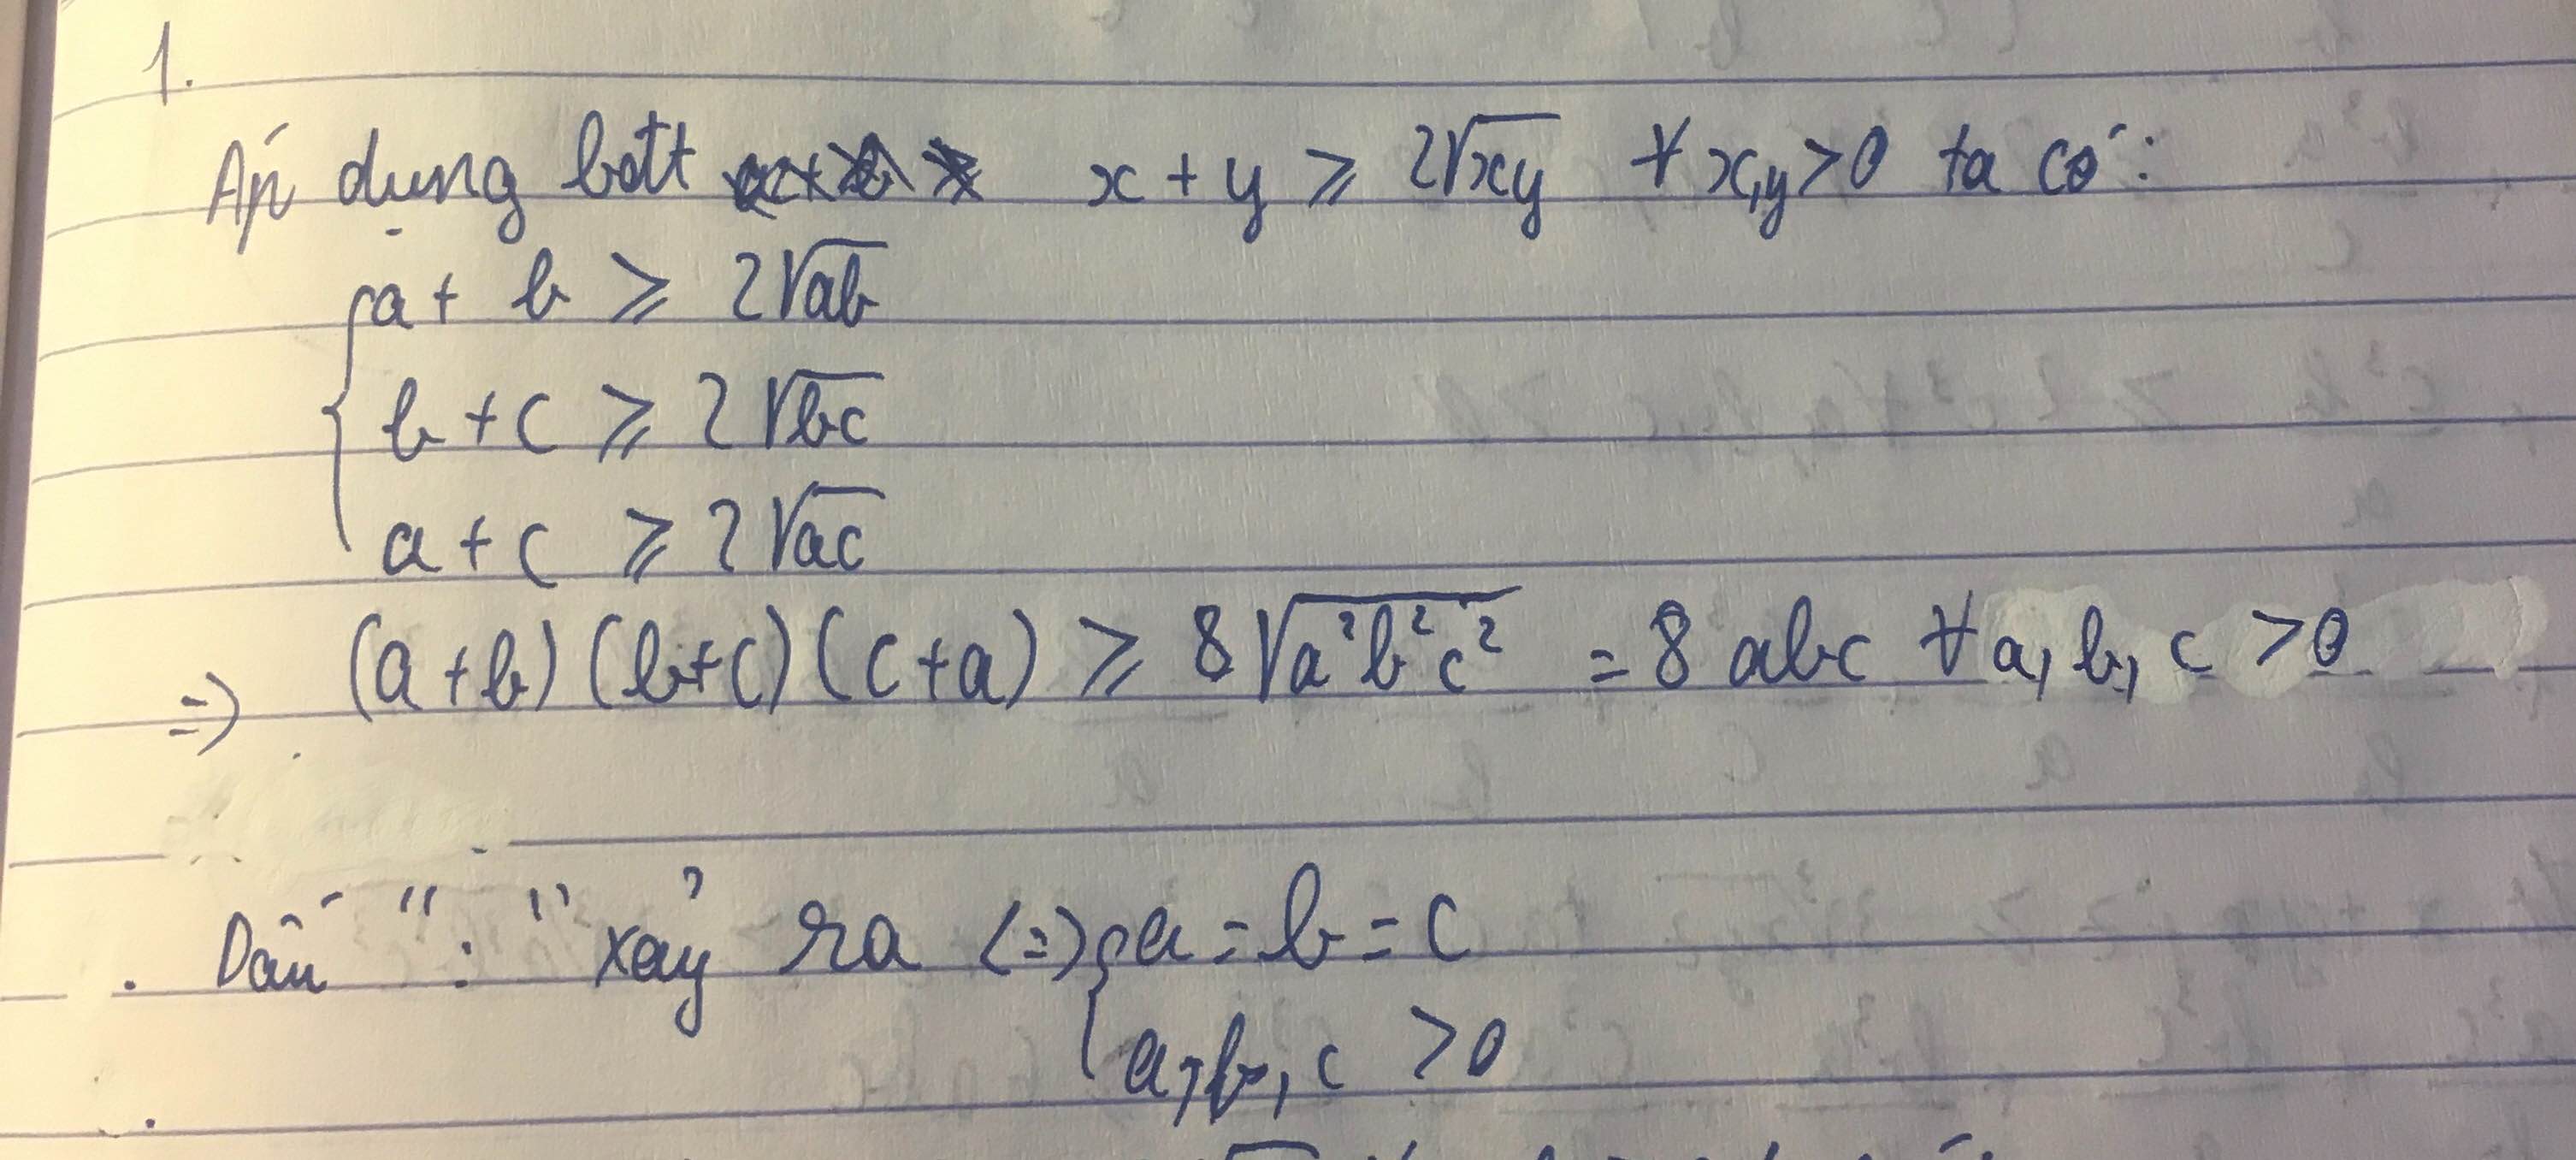 1.
Áp dụng bđtt x + y ⩾ 2√xy ∀ x,y > 0 ta có :
{ a + b ⩾ 2√ab
b + c ⩾ 2√bc
a + c ⩾ 2√ac
=> (a + b) (b + c) (c + a) ⩾ 8√a²b²c² = 8 abc ∀ a, b, c > 0
. Dấu " = " xảy ra <=> { a = b = c
a, b, c > 0